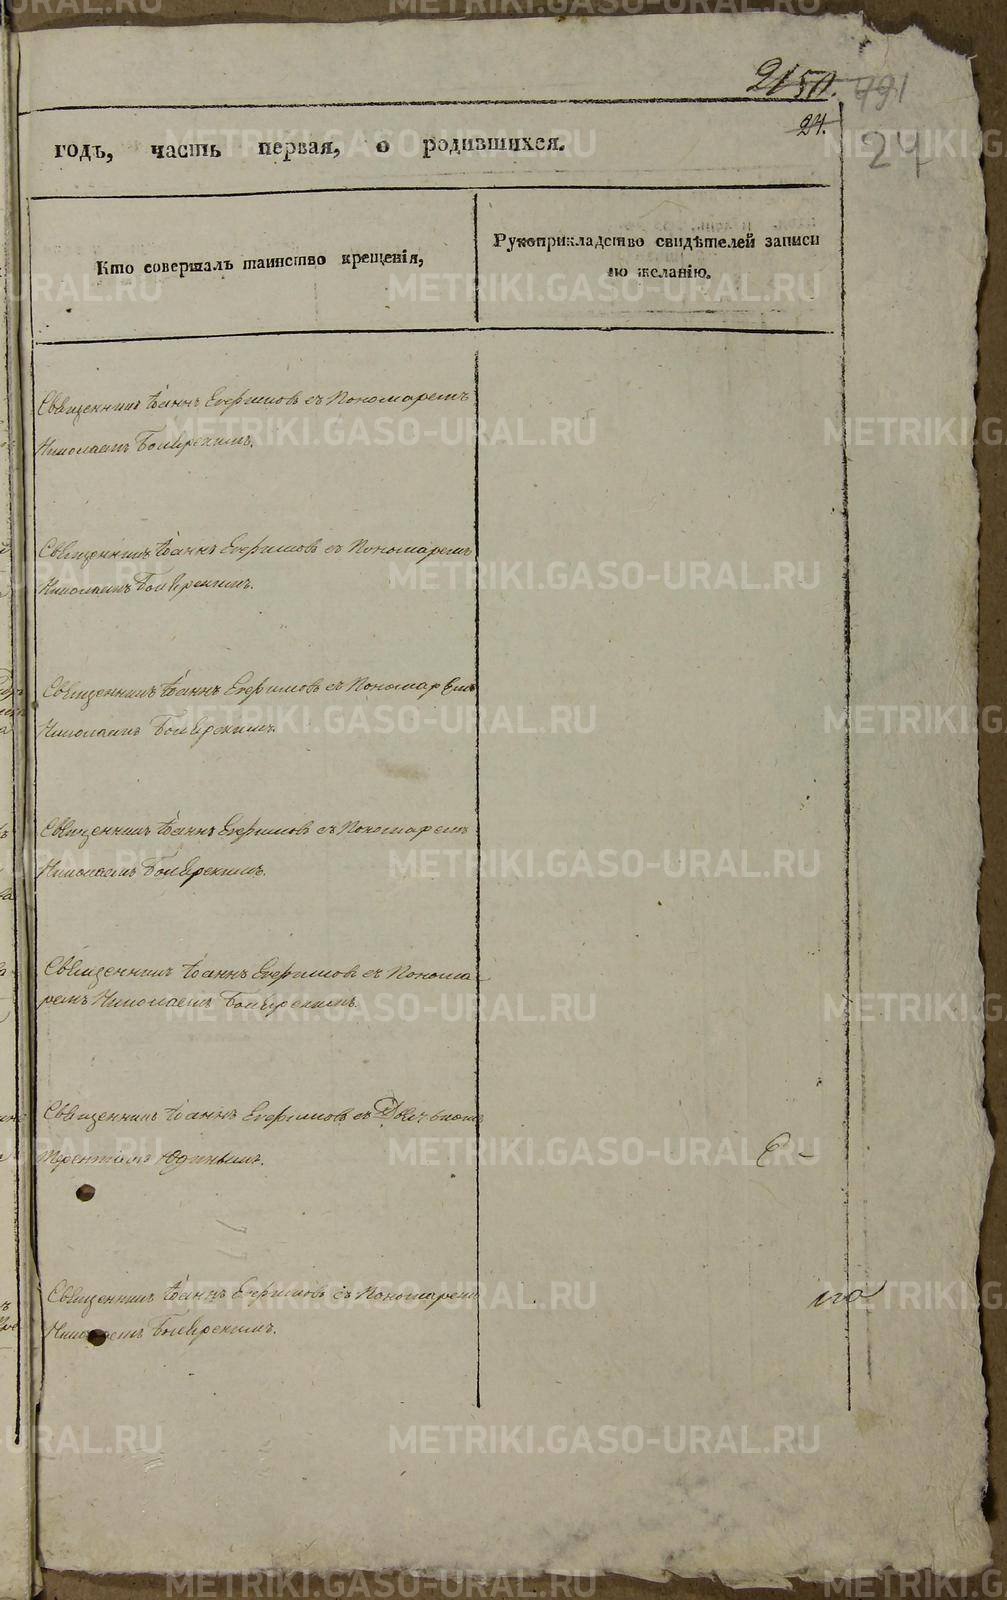 2150. 791
24. 24
годъ, часть первая, о родившихся.
Кто совершалъ таинство крещенія,
Рукоприкладство свидѣтелей записи
по желанію.
Священникъ Іоаннъ Ефимовъ съ Пономаремъ
Николаемъ
Священникъ Іоаннъ Ефимовъ съ Пономаремъ
Николаемъ
Священникъ Іоаннъ Ефимовъ съ Пономаремъ
Николаемъ
Священникъ Іоаннъ Ефимовъ съ Пономаремъ
Николаемъ
Священникъ Іоаннъ Ефимовъ съ Понома-
ремъ Николаемъ
Священникъ Іоаннъ Ефимовъ съ Дьячкомъ
Терентіемъ Юдинымъ.
Священникъ Іоаннъ Ефимовъ съ Пономаремъ
Николаемъ
METRIKI.GASO-URAL.RU